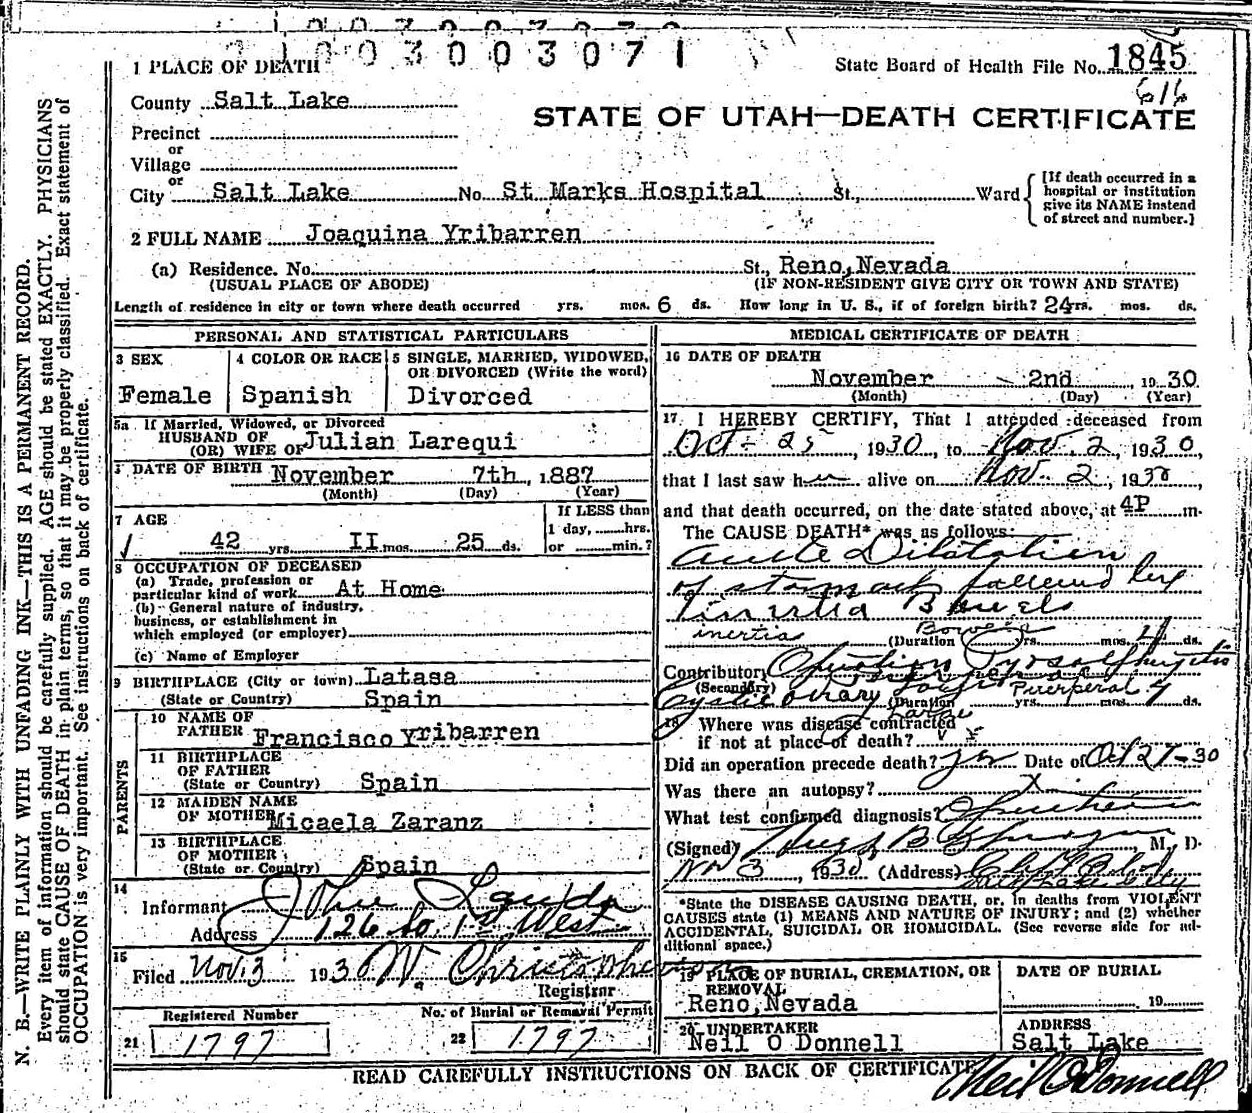 1003003071
1 PLACE OF DEATH
State Board of Health File No. 1845
616
County Salt Lake
STATE OF UTAH—DEATH CERTIFICATE
Precinct
or
Village
or
City Salt Lake No. St Marks Hospital St., Ward
[If death occurred in a hospital or institution give its NAME instead of street and number.]
2 FULL NAME Joaquina Yribarren
(a) Residence. No. St., Reno, Nevada
(USUAL PLACE OF ABODE) (IF NON-RESIDENT GIVE CITY OR TOWN AND STATE)
Length of residence in city or town where death occurred yrs. mos. 6 ds. How long in U. S., if of foreign birth? 24 yrs. mos. ds.
PERSONAL AND STATISTICAL PARTICULARS
3 SEX
Female
4 COLOR OR RACE
Spanish
5 SINGLE, MARRIED, WIDOWED, OR DIVORCED (Write the word)
Divorced
5a If Married, Widowed, or Divorced
HUSBAND OF
(OR) WIFE OF Julian Larequi
DATE OF BIRTH November 7th, 1887
(Month) (Day) (Year)
7 AGE
42 yrs. II mos. 25 ds.
If LESS than
1 day, hrs.
or min.?
8 OCCUPATION OF DECEASED
(a) Trade, profession or
particular kind of work At Home
(b) General nature of industry,
business, or establishment in
which employed (or employer)
(c) Name of Employer
9 BIRTHPLACE (City or town) Latasa
(State or Country) Spain
PARENTS
10 NAME OF
FATHER Francisco Yribarren
11 BIRTHPLACE
OF FATHER
(State or Country) Spain
12 MAIDEN NAME
OF MOTHER Micaela Zaranz
13 BIRTHPLACE
OF MOTHER
(State or Country) Spain
14
Informant John
Address 126 So. 1st West
15
Filed Nov. 3 1930 W. Christopherson
Registrar
Registered Number
21 1797
No. of Burial or Removal Permit
22 1797
MEDICAL CERTIFICATE OF DEATH
16 DATE OF DEATH
November 2nd, 1930
(Month) (Day) (Year)
17. I HEREBY CERTIFY, That I attended deceased from
Oct - 25, 1930, to Nov. 2, 1930,
that I last saw her alive on Nov. 2, 1930,
and that death occurred, on the date stated above, at 4P m.
The CAUSE DEATH* was as follows:
Acute Dilatation
of stomach followed by
inertia Bowels
inertia Bowels
(Duration yrs. mos. ds.
Contributory Operation Pyosalpingitis
(Secondary)
Cystic ovary Puerperal
(Duration yrs. mos. ds.
18 Where was disease contracted
if not at place of death?
Did an operation precede death? yes Date of Oct 27-30
Was there an autopsy? X
What test confirmed diagnosis?
(Signed) Hugh B. M. D.
Nov 3, 1930 (Address)
Salt Lake City
*State the DISEASE CAUSING DEATH, or, in deaths from VIOLENT
CAUSES state (1) MEANS AND NATURE OF INJURY; and (2) whether
ACCIDENTAL, SUICIDAL OR HOMICIDAL. (See reverse side for ad-
ditional space.)
19 PLACE OF BURIAL, CREMATION, OR
REMOVAL
Reno, Nevada
DATE OF BURIAL
19
20 UNDERTAKER
Neil O Donnell
ADDRESS
Salt Lake
READ CAREFULLY INSTRUCTIONS ON BACK OF CERTIFICATE
Neil O'Donnell
N. B.—WRITE PLAINLY WITH UNFADING INK—THIS IS A PERMANENT RECORD.
Every item of information should be carefully supplied. AGE should be stated EXACTLY. PHYSICIANS
should state CAUSE OF DEATH in plain terms, so that it may be properly classified. Exact statement of
OCCUPATION is very important. See instructions on back of certificate.